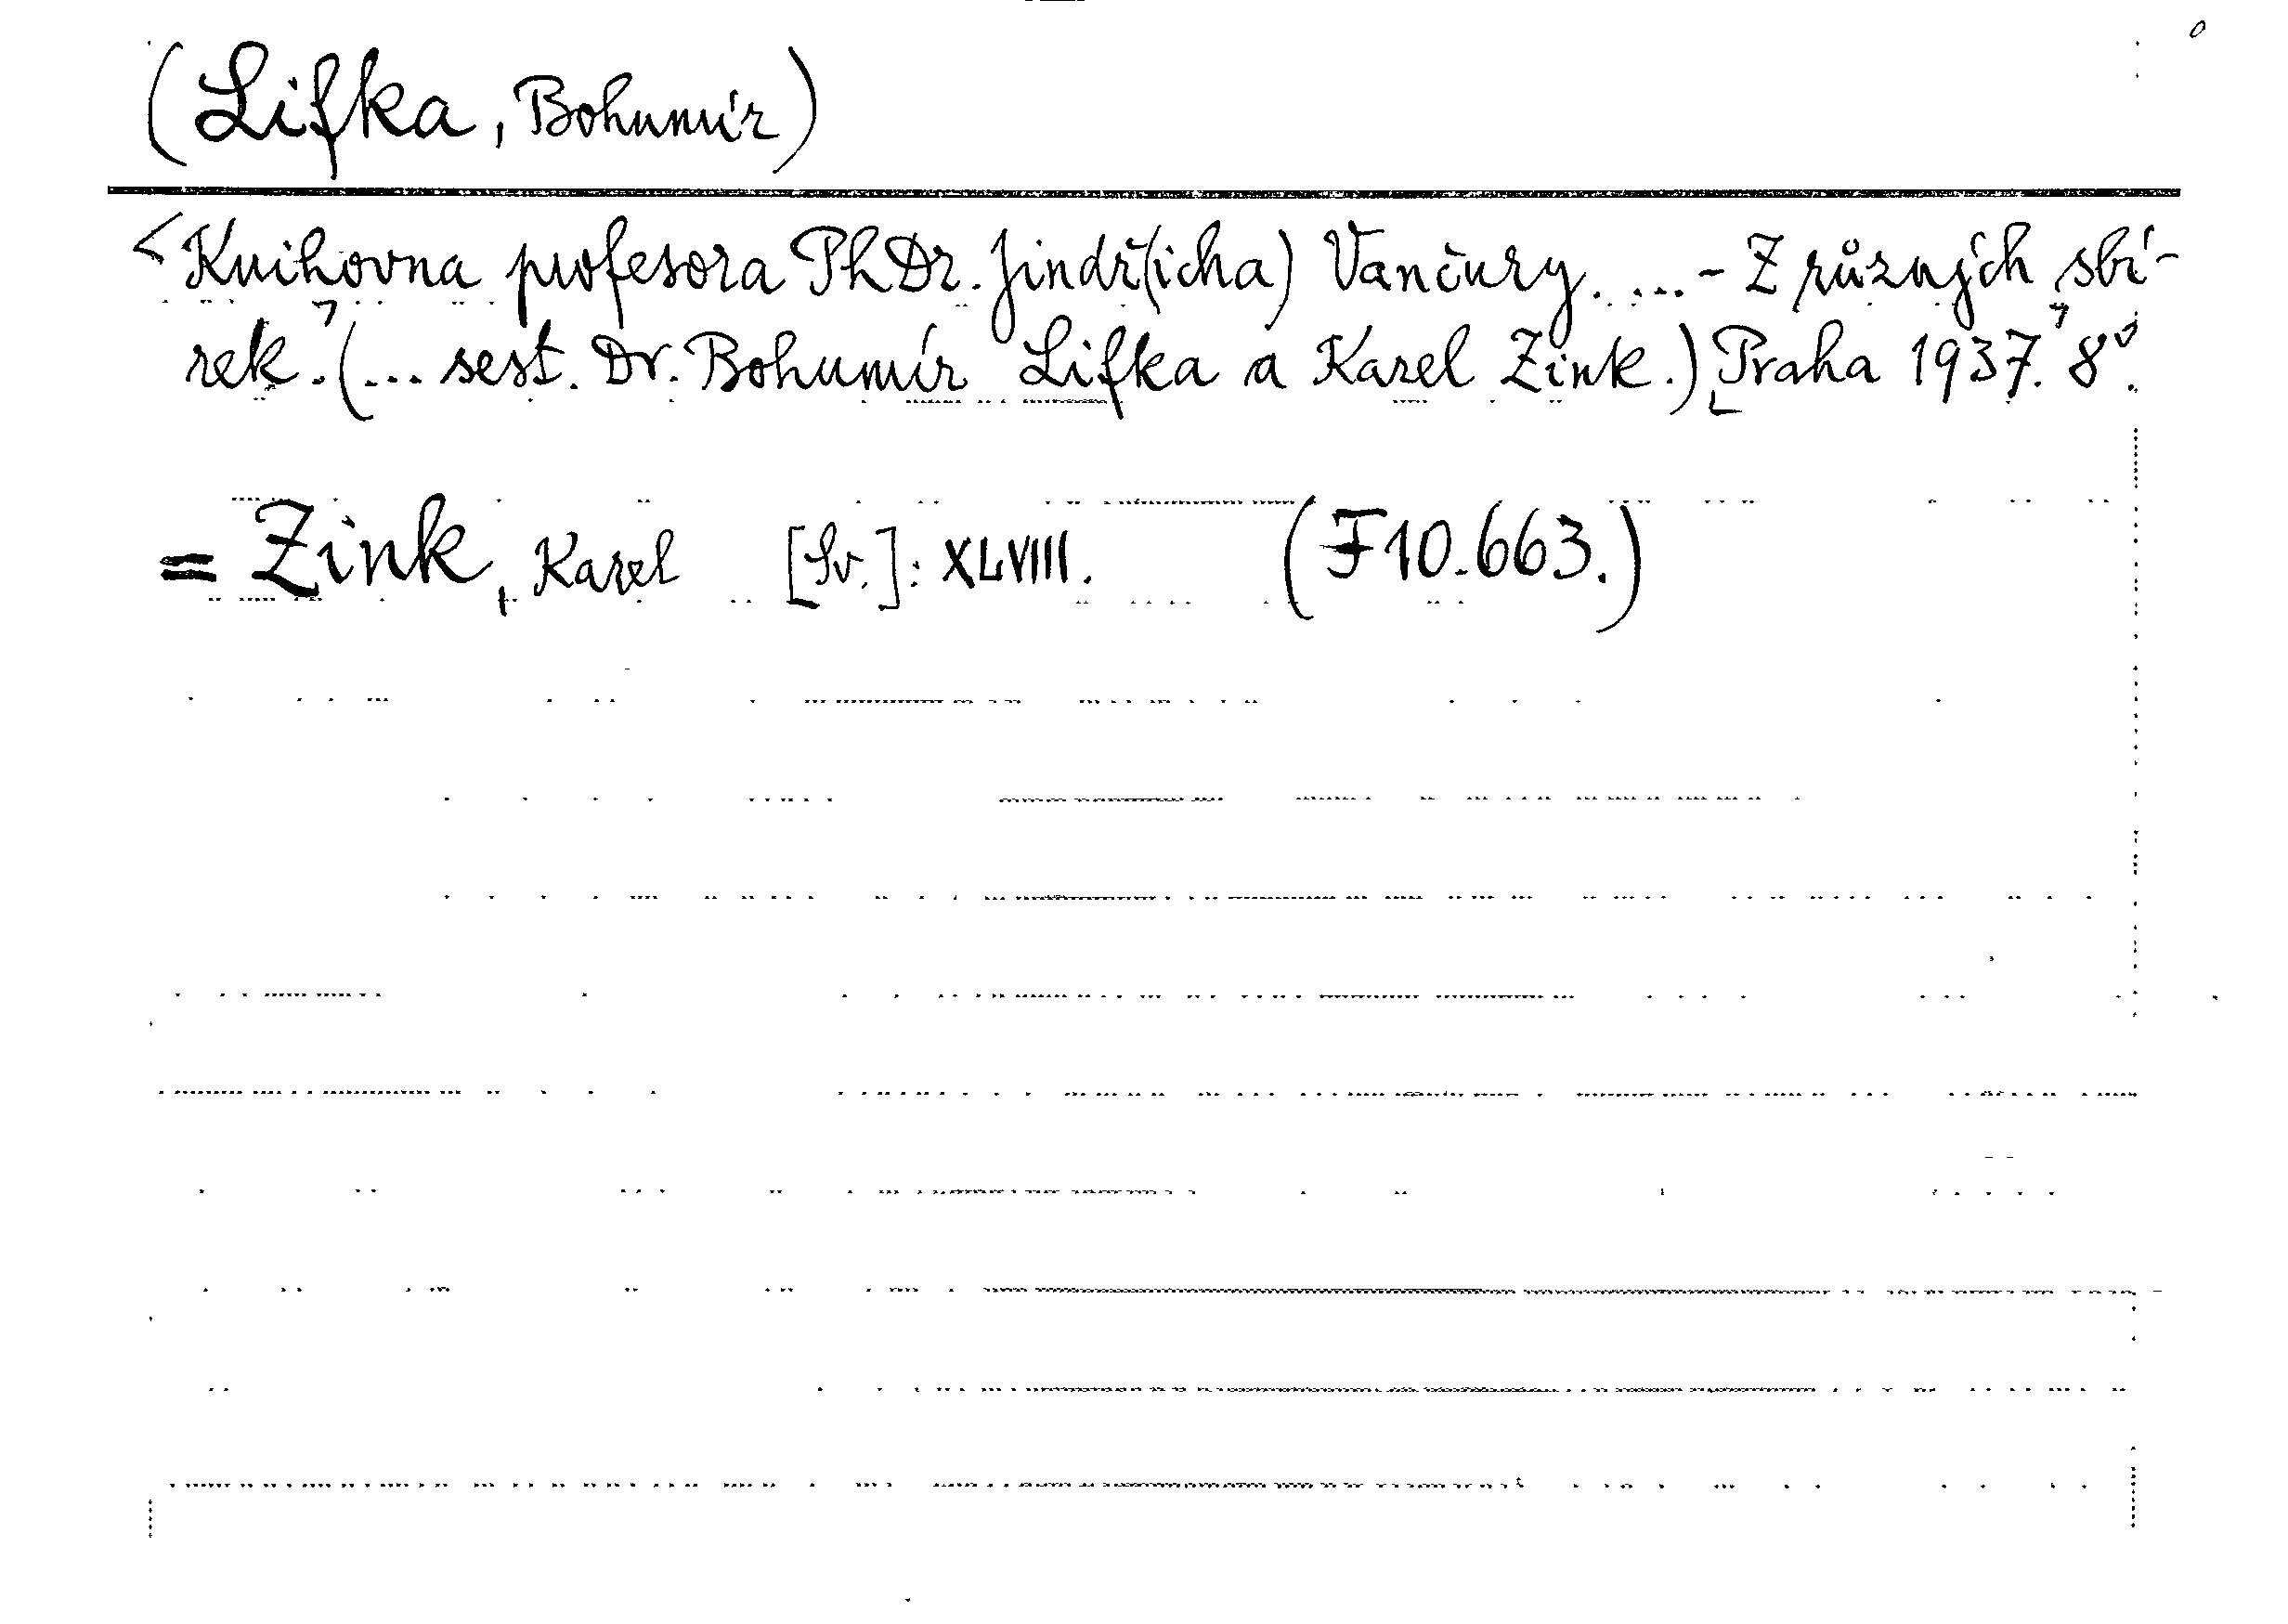 (Lifka, Bohumír)
<Knihovna profesora PhDr. Jindř(icha) Vančury. ... - Z různých sbí-
rek.⌝(... sest. Dr. Bohumír Lifka a Karel Zink.) ⌞Praha 1937.⌝ 8°.
= Zink, Karel [Sv.]: XLVIII. (F10.663.)